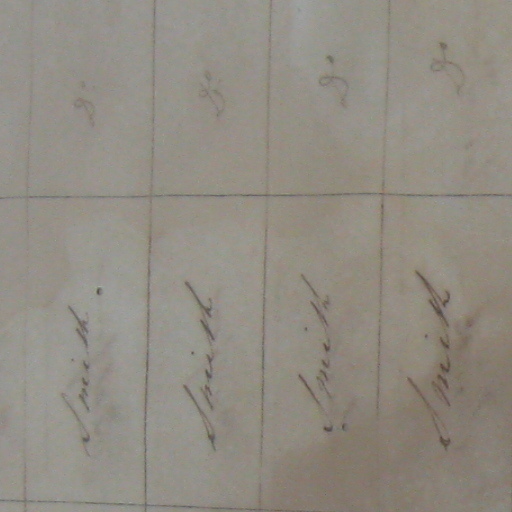 Smith. Do
Smith Do
Smith Do
Smith Do